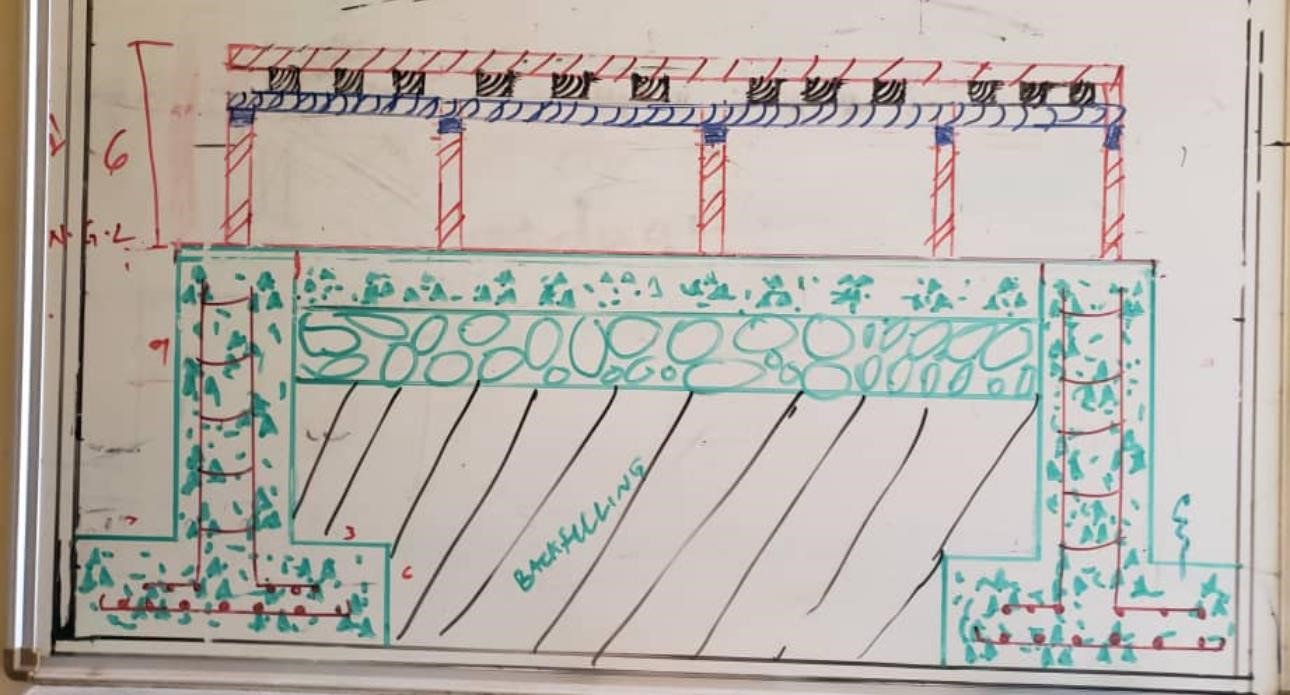 6
N.G.L
9
3
6
BACKFILLING